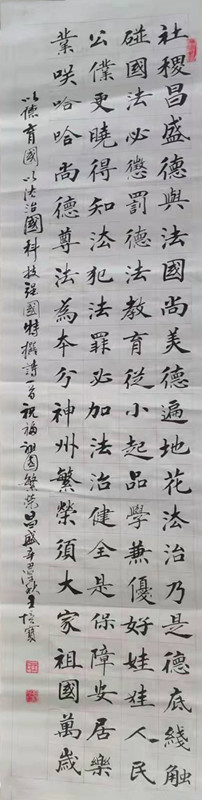 社稷昌盛德與法國尚美德遍地花法治乃是德底綫觸
碰國法必懲罰德法教育從小起品學兼優好娃娃人民
公僕更曉得知法犯法罪必加法治健全是保障安居樂
業咲哈哈尚德尊法為本兮神州繁榮須大家祖國萬歲
以德育國以法治國科技强國特撰詩一首祝福祖國繁荣昌盛辛丑深秋王培夏